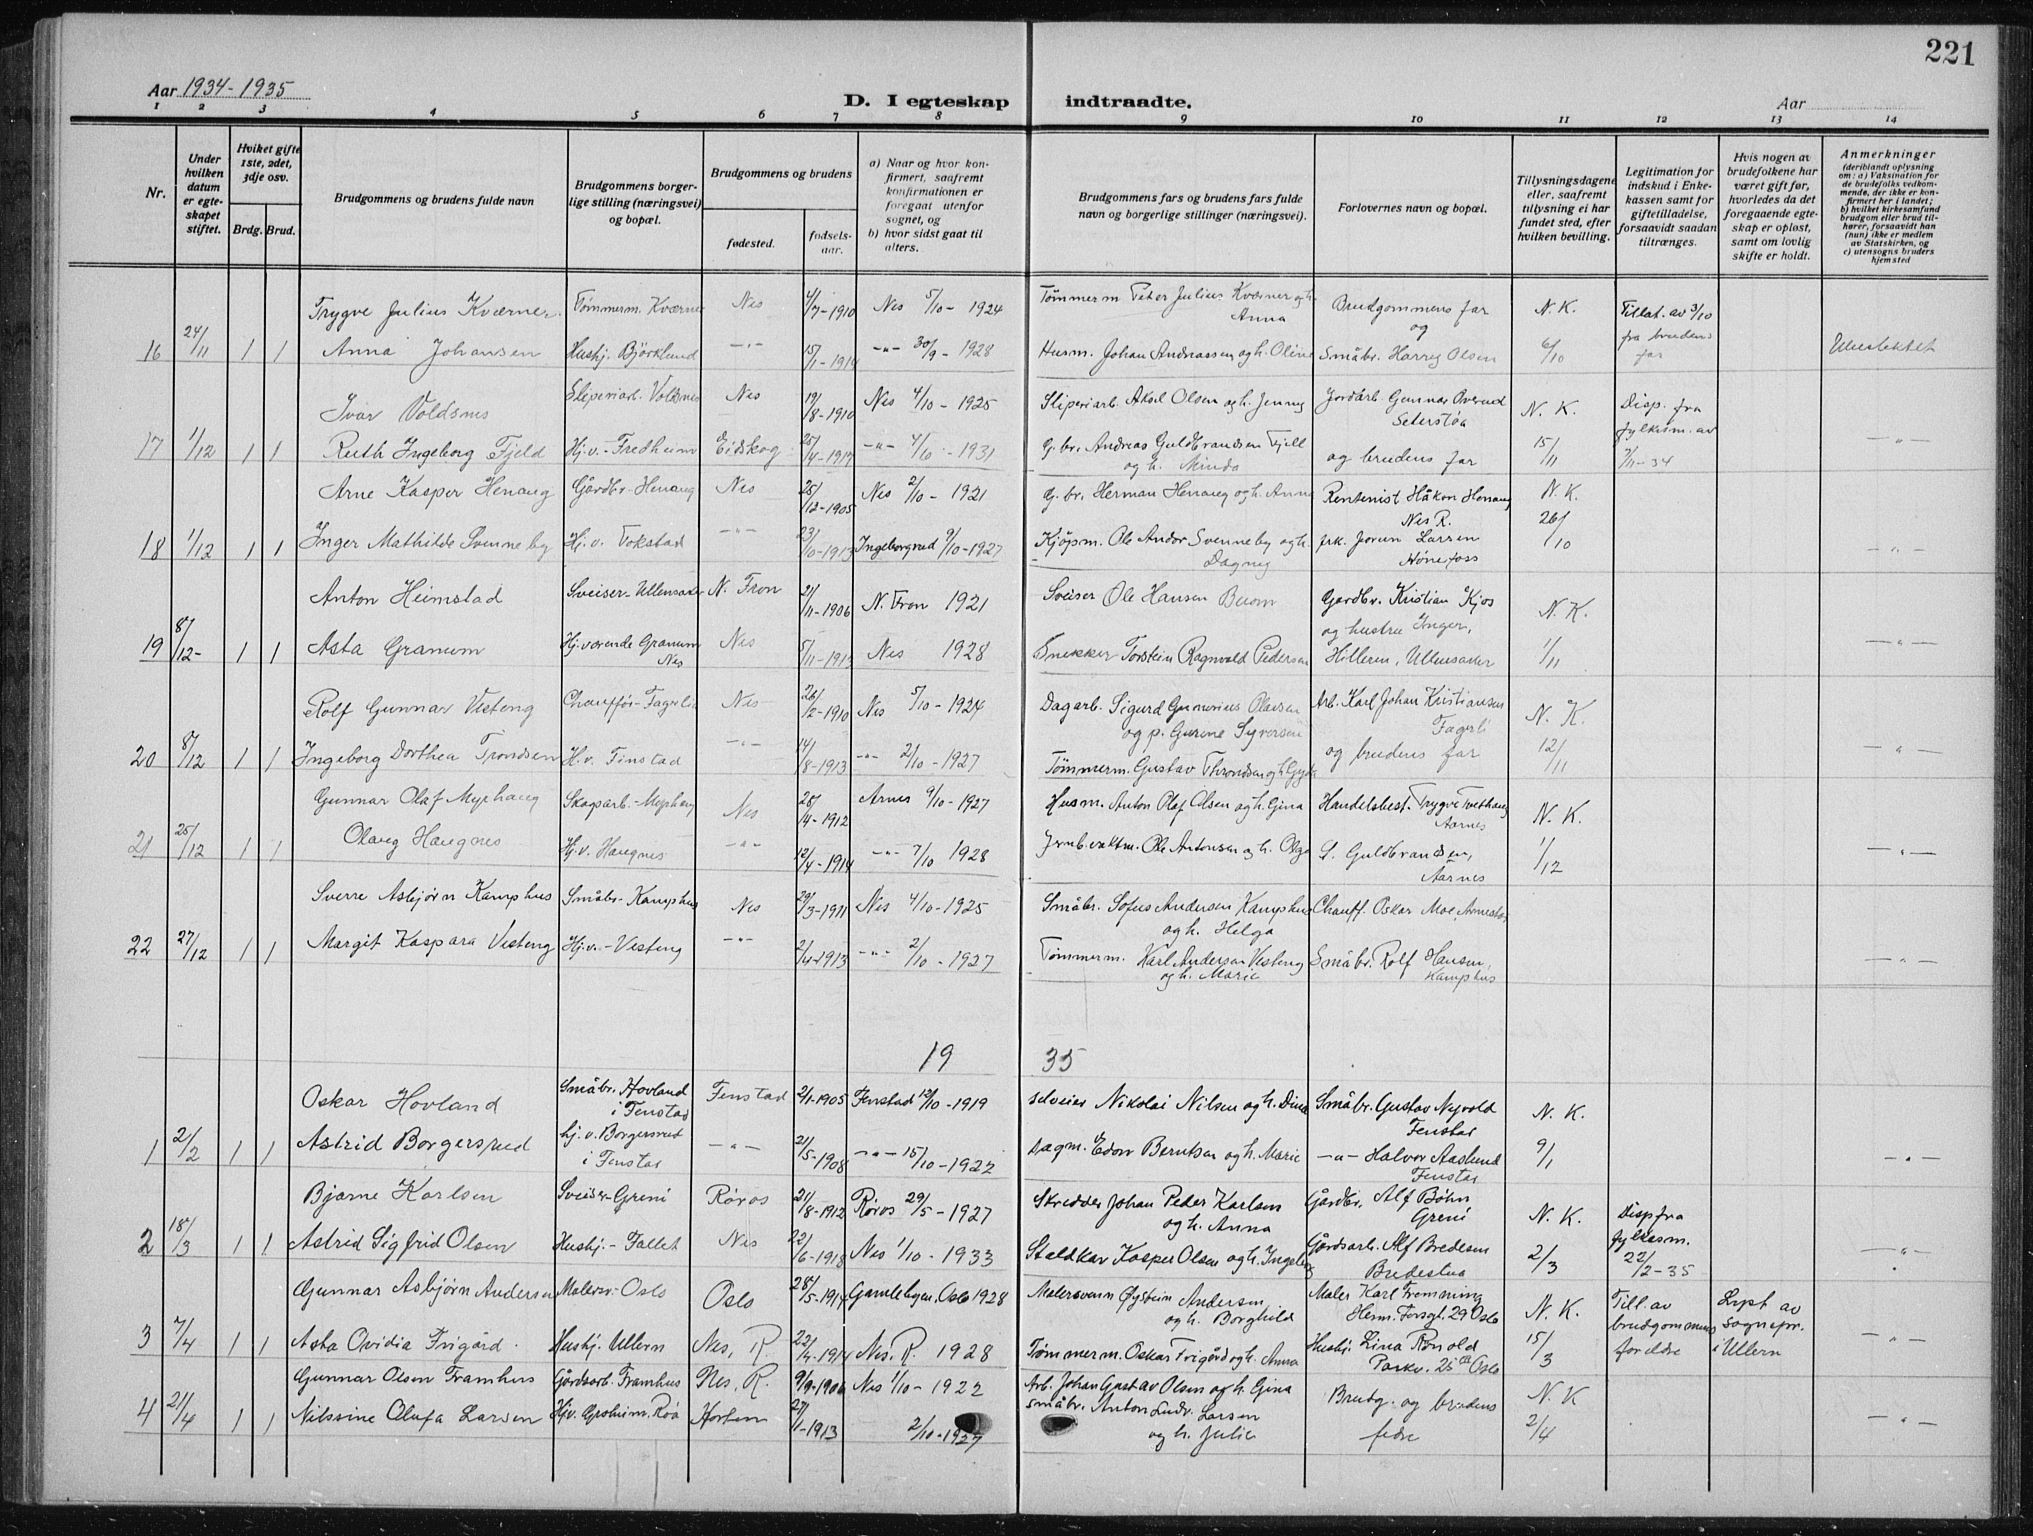 221
Aar 1934-1935
D. I egteskap indtraadte.
Aar
1 2 3 4 5 6 7 8 9 10 11 12 13 14
Nr.
Under hvilken datum er egteskapet stiftet.
Hvilket gifte 1ste, 2det, 3dje osv.
Brdg. Brud.
Brudgommens og brudens fulde navn
Brudgommens borgerlige stilling (næringsvei) og bopæl.
Brudgommens og brudens
fødested.
fødselsaar.
a) Naar og hvor konfirmert, saafremt konfirmationen er foregaat utenfor sognet, og
b) hvor sidst gaat til alters.
Brudgommens fars og brudens fars fulde navn og borgerlige stillinger (næringsvei).
Forlovernes navn og bopæl.
Tillysningsdagene eller, saafremt tillysning ei har fundet sted, efter hvilken bevilling.
Legitimation for indskud i Enkekassen samt for giftetilladelse, forsaavidt saadan tiltrænges.
Hvis nogen av brudefolkene har været gift før, hvorledes da det foregaaende egteskap er opløst, samt om lovlig skifte er holdt.
Anmerkninger
(deriblandt oplysning om: a) Vaksination for de brudefolks vedkommende, der ikke er konfirmert her i landet; b) hvilket kirkesamfund brudgom eller brud tilhører, forsaavidt han (hun) ikke er medlem av Statskirken, og c) utensogns bruders hjemsted
Trygve Julius Kværner Tømmerm. Kværner Nes 4/7-1910 Nes 5/10-1924 Tømmerm Peter Julius Kværner og h. Anna Brudgommens far og N. K. Tillat. av 3/10 fra brudens far
16 24/11 1 1 Anna Johansen Hushj. Björklund -"- 15/1-1914 -"- 30/9-1928 Husm. Johan Andreassen og h. Oline Småbr. Harry Olsen 6/10 Ubeslektet
Ivar Voldsnes Sliperiarb. Voldsnes Nes 19/8-1910 Nes 4/10-1925 Sliperiarb. Aksel Olsen og h. Jenny Jordarb. Gunnar Overud Seterstøa N. K. Disp. fra fylkesm. av
17 1/12 1 1 Ruth Ingeborg Fjeld Hj.v.-Fredheim Eidskog 25/4-1917 -"- 4/10-1931 G. br. Andreas Guldbrandsen Fjell og h. Minda og brudens far 15/11 7/11-34 -"-
Arne Kasper Henaug Gårdbr. Henaug Nes 25/12-1905 Nes 2/10-1921 G. br. Herman Henaug og h. Anna Rentenist Håkon Henaug Nes R. N. K.
18 1/12 1 1 Inger Mathilde Svenneby Hj.v. Tokstad -"- 23/10-1913 Ingeborgrud 9/10-1927 Kjøpm. Ole Andor Svenneby og h. Dagny frk. Jorun Larsen Hönefoss 26/10 -"-
Anton Heimstad Sveiser-Ullensaker N. Fron 21/11-1906 N. Fron 1921 Sveiser Ole Hansen Buom Gårdbr. Kristian Kjos og hustru Inger, N. K.
19 8/12- 1 1 Asta Granum Hj. værende Granum Nes Nes 5/11-1913 Nes 1928 Snekker Torstein Ragnvald Pedersen Hilleren, Ullensaker 1/11 -"-
Rolf Gunnar Vesteng Chauffør-Fagerli Nes 26/2-1910 Nes 5/10-1924 Dagarb. Sigurd Gunerius Olausen og p. Gurine Syversen Arb. Karl Johan Kristiansen Fagerli N. K.
20 8/12 1 1 Ingeborg Dorthea Trondsen H.v. Finstad -"- 14/8-1913 -"- 2/10-1927 Tømmerm. Gustav Throndsen og h. Gyda og brudens far 12/11 -"-
Gunnar Olaf Myrhaug Skogsarb.-Myrhaug Nes 28/4-1912 Arnes 9/10-1927 Husm. Anton Olaf Olsen og h. Gina Handelsbest. Trygve Tvethaug Aarnes N. K.
21 25/12 1 1 Olaug Haugnes Hj.v. Haugnes -"- 12/4-1914 -"- 7/10 1928 Jernb.vaktm. Ole Antonsen og h. Olga S. Guldbrandsen, Aarnes 1/12 -"-
Sverre Asbjørn Kamphus Småbr.-Kamphus Nes 29/3-1911 Nes 4/10-1925 Småbr. Sofus Andersen Kamphus og h. Helga Chauff. Oskar Moe, Arnestø
22 27/12 1 1 Margit Kaspara Vesteng Hj.v.-Vesteng -"- 2/4-1913 -"- 2/10-1927 Tømmerm. Karl Andersen Vesteng og h. Marie Småbr. Rolf Hansen, Kamphus -"-
19 35
Oskar Hovland Småbr. Hovland i Fenstad Fenstad 2/1-1905 Fenstad 12/10-1919 Sveiser Nikolai Nilsen og h. Dina Småbr. Gustav Nyvold Fenstad N. K.
1 2/2 1 1 Astrid Borgersrud hj.v. Borgersrud i Fenstad -"- 21/5-1908 -"- 15/10-1922 Dagm. Edon Berntsen og h. Marie -"- Halvor Aaslund Fenstad 9/1 -"-
Bjarne Karlsen Sveiser-Greni Røros 21/8-1912 Røros 29/5-1927 Skredder Johan Peder Karlsen og h. Anna Gårdbr. Alf Bøhn Greni N. K. Disp fra fylkesm.
2 18/3 1 1 Astrid Sigfrid Olsen Hushj.-Fallet Nes 22/6-1918 Nes 1/10-1933 Staldkar Kasper Olsen og h. Ingeborg Gårdsarb. Alf Bredesen Bredestua 2/3 22/2-35 -"-
Gunnar Asbjørn Andersen Malersv.-Oslo Oslo 28/5-1914 Gamlebyen, Oslo 1928 Malersvenn Øystein Andersen og h. Borghild Maler Karl Fremming Herm. Forsgt. 29 Oslo N. K. Till. av brudgommens foreldre Lyst av sognepr. i Ullern
3 7/4 1 1 Asta Ovidia Frigård Hushj. Ullern Nes, R. 22/4-1914 Nes, R. 1928 Tømmerm. Oskar Frigård og h. Anna Hushj. Lina Rønold Parkv. 25 Oslo 15/3 -"-
Gunnar Olsen Framhus Gårdsarb. Framhus Nes, R. 9/9-1906 Nes 1/10-1922 Arb. Johan Gustav Olsen og h. Gina Brudg. og brudens fedre N. K
4 21/4 1 1 Nilssine Olufa Larsen Hjv. Groheim, Roa Horten 27/1-1913 2/10-1927 Småbr. Anton Ludv. Larsen og h. Julie 2/4 -"-